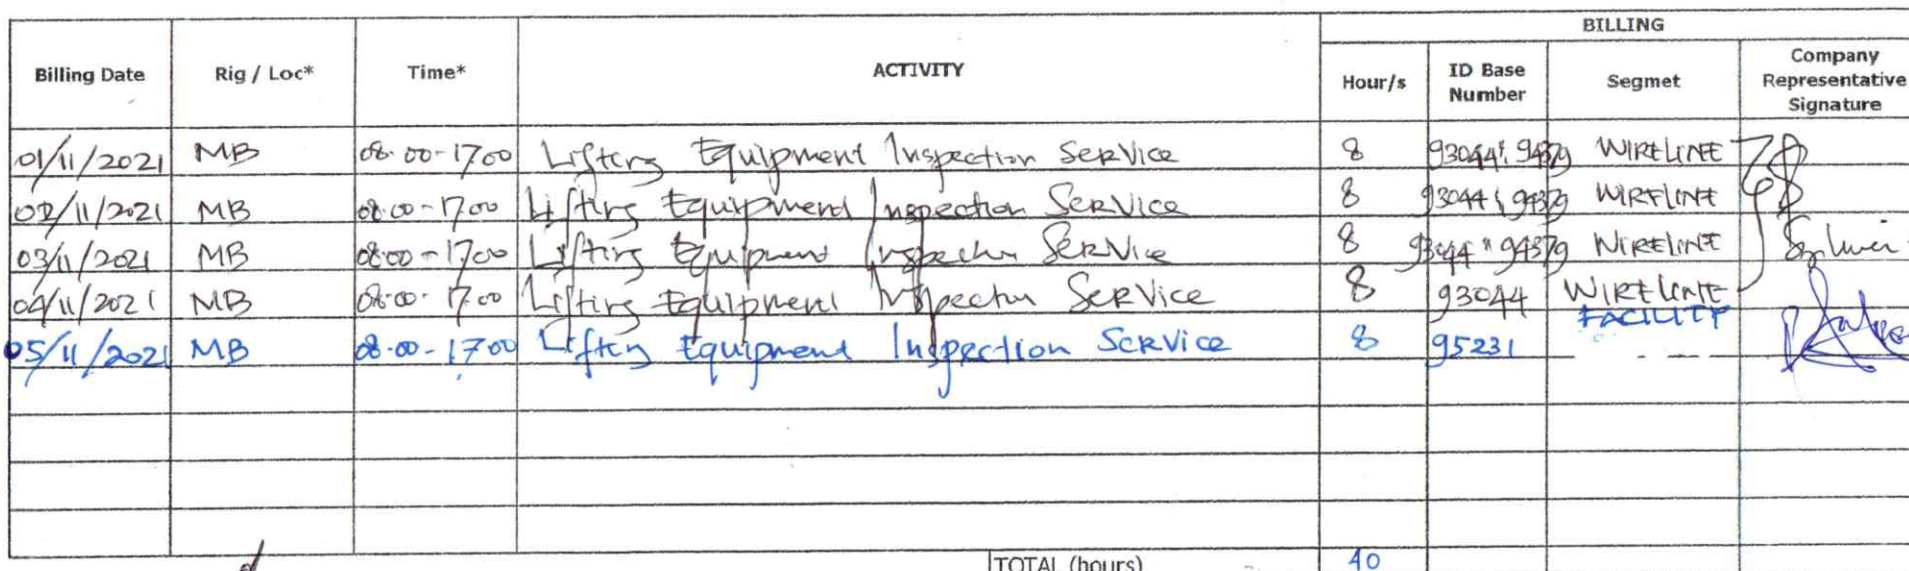 BILLING
Billing Date Rig / Loc* Time* ACTIVITY Hour/s ID Base Number Segmet Company Representative Signature
01/11/2021 MB 08.00-1700 Lifting Equipment Inspection Service 8 93044 & 94379 WIRELINE
02/11/2021 MB 08.00-17.00 Lifting Equipment Inspection Service 8 93044 & 94379 WIRELINE
03/11/2021 MB 08.00-17.00 Lifting Equipment Inspection Service 8 93044 " 94379 WIRELINE
04/11/2021 MB 08.00-17.00 Lifting Equipment Inspection Service 8 93044 WIRELINE
05/11/2021 MB 08.00-17.00 Lifting Equipment Inspection Service 8 95231 FACILITY
TOTAL (hours) 40